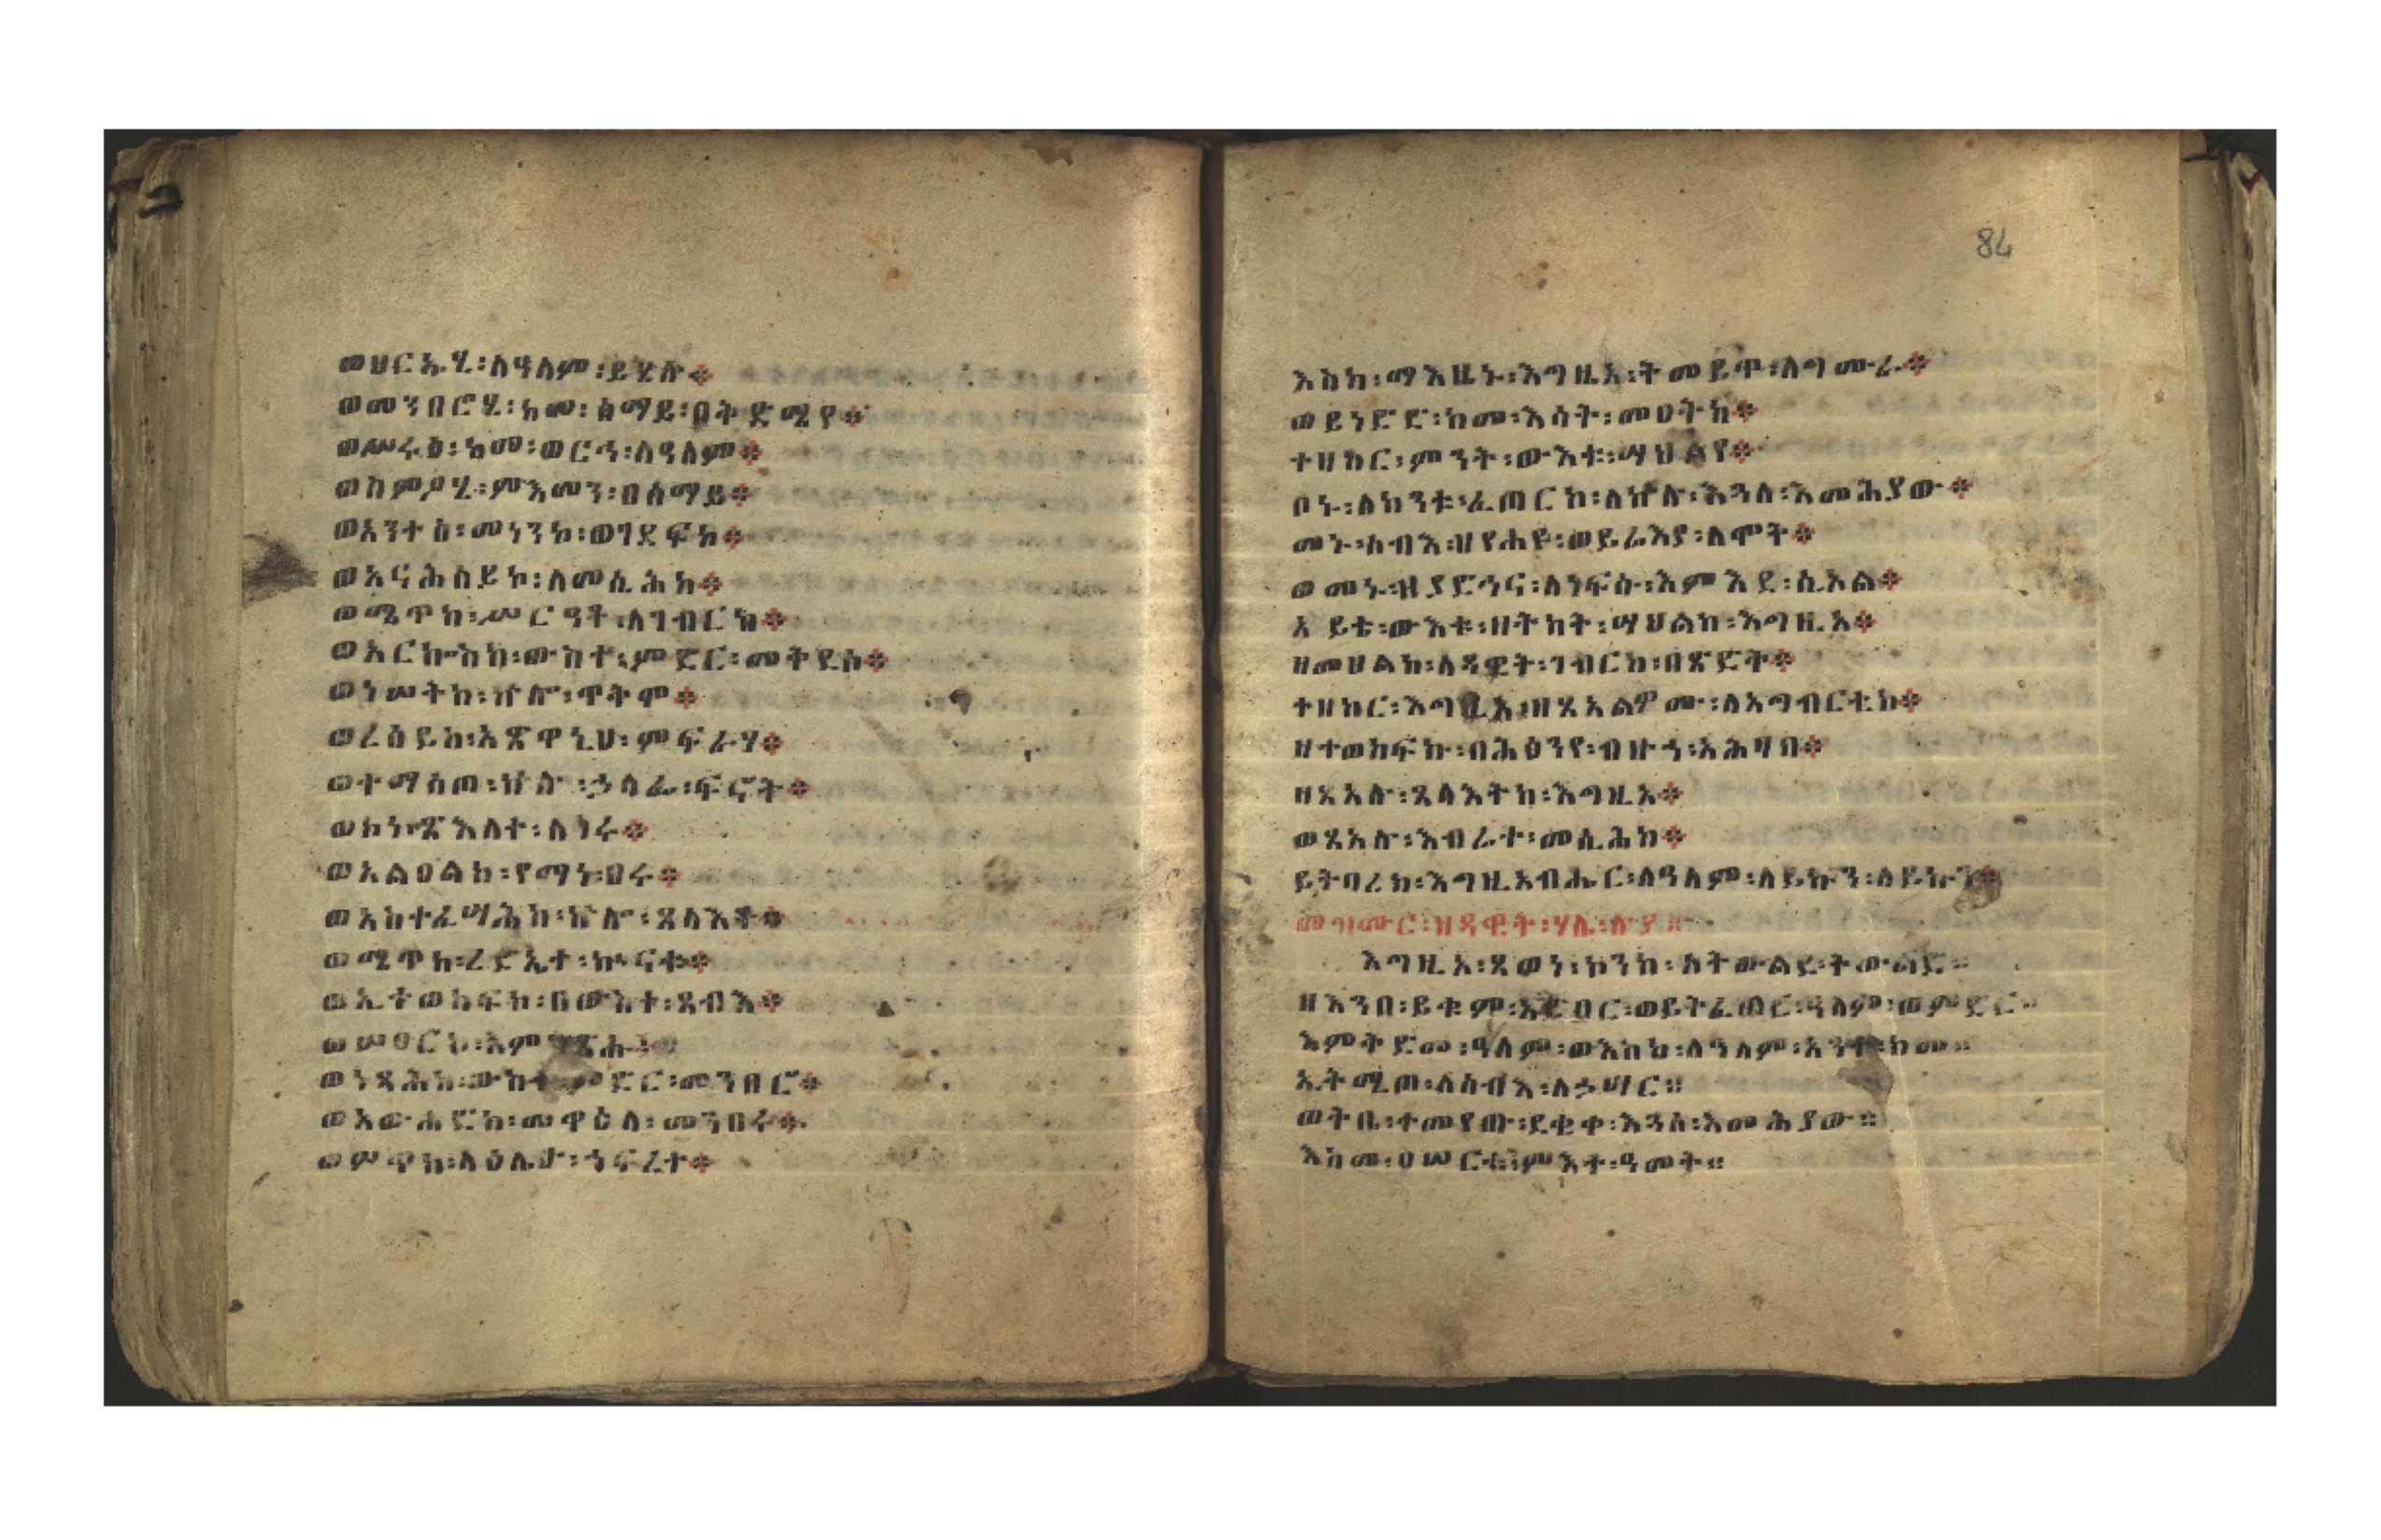 ወዘርኡሂ፡ለዓለም፡ይሄሉ፨
ወመንበሮሂ፡ከመ፡ፀሓይ፡በቅድሜየ፨
ወሥሩዕ፡ከመ፡ወርኅ፡ለዓለም፨
ወስምዖሂ፡ምእመን፡በሰማይ፨
ወአንተሰ፡መነንከ፡ወገደፍከ፨
ወአናሕሰይኮ፡ለመሲሕከ፨
ወሜጥከ፡ሥርዓት፡ለገብርከ፨
ወአርኰስከ፡ውስተ፡ምድር፡መቅደሶ፨
ወነሠትከ፡ኵሎ፡ጥቅሞ፨
ወረሰይከ፡አጽዋኒሁ፡ምፍራሃ፨
ወተማሰጦ፡ኵሉ፡ኃላፌ፡ፍኖት፨
ወኮነ፡ጽእለተ፡ለጎሩ፨
ወአልዐልከ፡የማነ፡ፀሩ፨
ወአስተፈሣሕከ፡ኵሎ፡ጸላእቶ፨
ወሜጥከ፡ረድኤተ፡ኵናቱ፨
ወኢተወከፍኮ፡በውስተ፡ጸብእ፨
ወሠዐርኮ፡እምንጽሑ፨
ወነጻሕከ፡ውስተ፡ምድር፡መንበሮ፨
ወአውሐድከ፡መዋዕለ፡መንበሩ፨
ወሦጥከ፡ላዕሌሁ፡ኀፍረተ፨
84
እስከ፡ማእዜኑ፡እግዚአ፡ትመይጥ፡ለግሙራ፨
ወይነድድ፡ከመ፡እሳት፡መዐትከ፨
ተዘከር፡ምንት፡ውእቱ፡ሣህልየ፨
ቦኑ፡ለከንቱ፡ፈጠርኮ፡ለኵሉ፡እጓለ፡እመሕያው፨
መኑ፡ሰብእ፡ዘየሐዩ፡ወይሬእያ፡ለሞት፨
ወመኑ፡ዘያድኅና፡ለነፍሱ፡እምእደ፡ሲኦል፨
አይቴ፡ውእቱ፡ዘትካት፡ሣህልከ፡እግዚአ፨
ዘመሀልከ፡ለዳዊት፡ገብርከ፡በጽድቅ፨
ተዘከር፡እግዚአ፡ዘጸአልዎሙ፡ለአግብርቲከ፨
ዘተወከፍኩ፡በሕፅንየ፡ብዙኀ፡አሕዛበ፨
ዘጸአሉ፡ጸላእትከ፡እግዚአ፨
ወጸአሉ፡እብሬተ፡መሲሕከ፨
ይትባረክ፡እግዚአብሔር፡ለዓለም፡ለይኩን፡ለይኩን፨
መዝሙር፡ዘዳዊት፡ሃሌ፡ሉያ።
እግዚአ፡ጸወነ፡ኮንከ፡ለትውልደ፡ትውልድ።
ዘእንበለ፡ይቁም፡አድባር፡ወይትፈጠር፡ዓለም፡ወምድር።
እምቅድመ፡ዓለም፡ወእስከ፡ለዓለም፡አንተ፡ክመ።
ኢትሚጦ፡ለሰብእ፡ለኃሣር።
ወትቤ፡ተመየጡ፡ደቂቀ፡እጓለ፡እመሕያው።
እስመ፡ዐሠርቱ፡ምእት፡ዓመት።